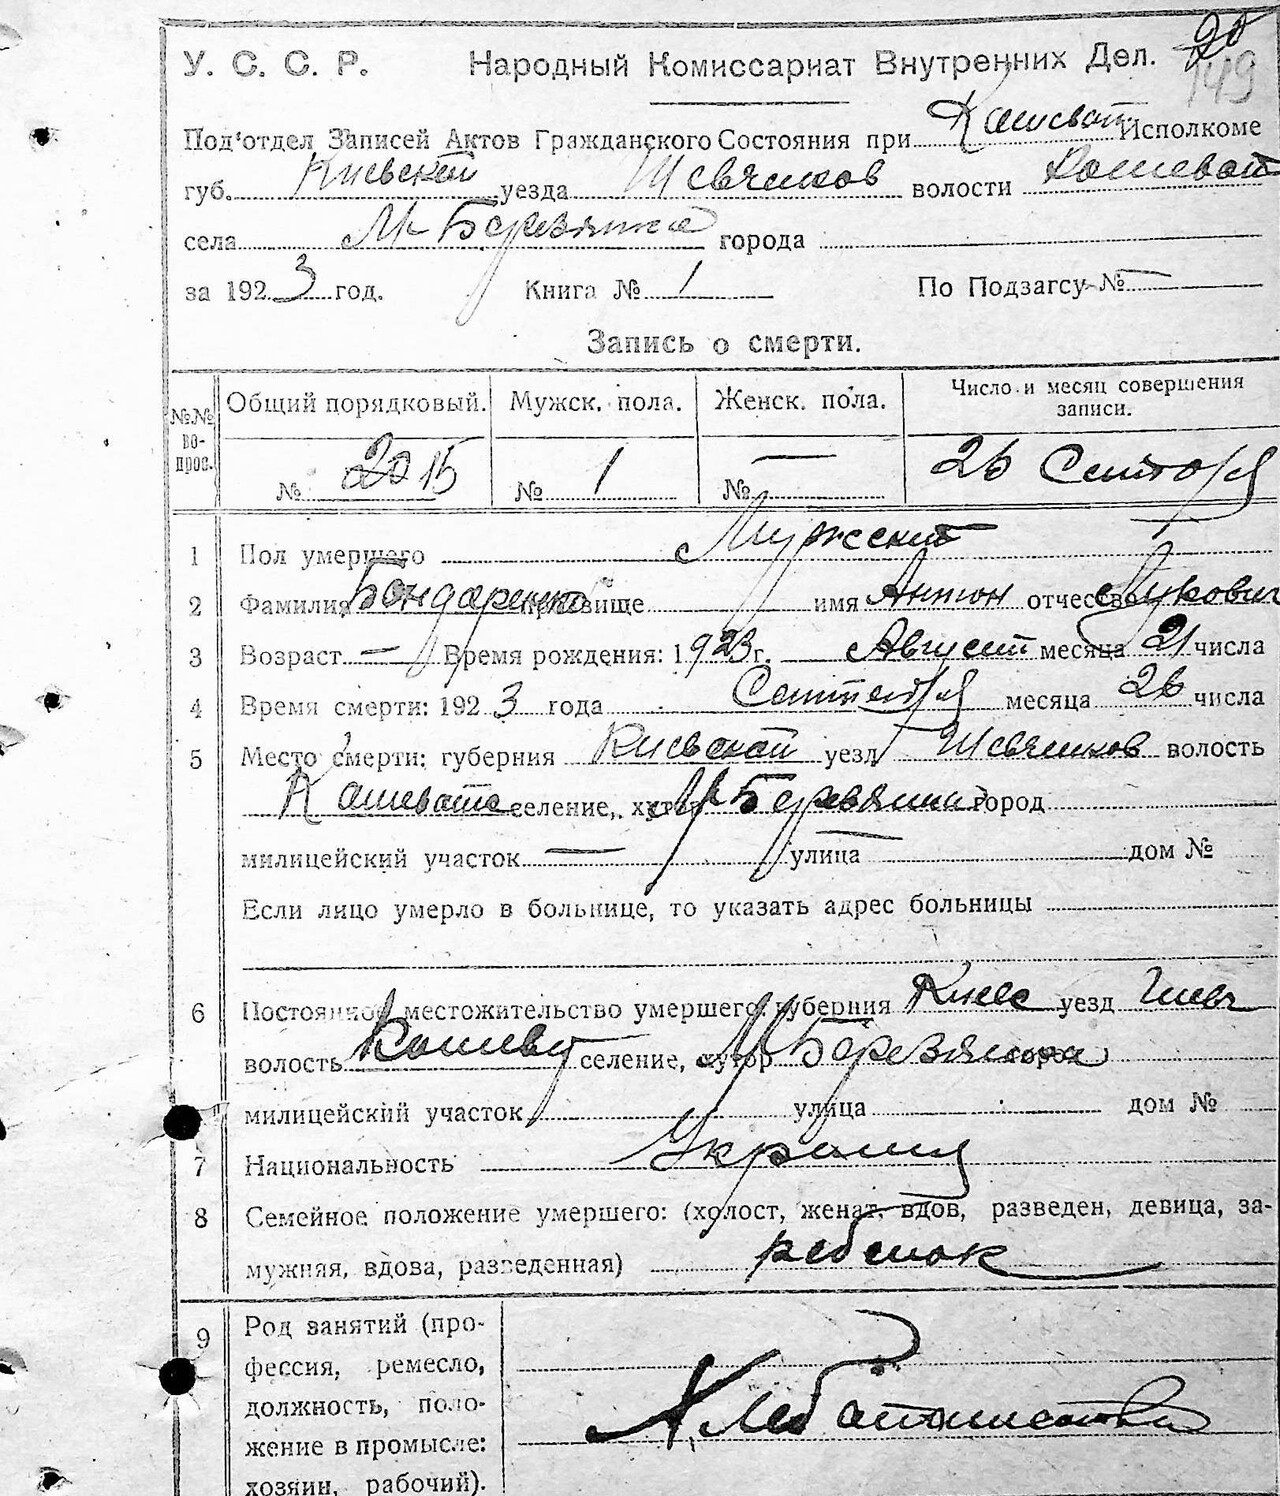 20
149
У. С. С. Р. Народный Комиссариат Внутренних Дел.
Под'отдел Записей Актов Гражданского Состояния при Кашеват Исполкоме
губ. Киевской уезда Шевченков волости Кошеват
села М Березянка города
за 1923 год. Книга № 1 По Подзагсу № —
Запись о смерти.
№№ вопрос. Общий порядковый. Мужск. пола. Женск. пола. Число и месяц совершения записи.
№ 20 15 № 1 № — 26 Сентября
1 Пол умершего Мужской
2 Фамилия Бондаренко прозвище имя Антон отчество Лукович
3 Возраст — Время рождения: 1923 г. Август месяца 21 числа
4 Время смерти: 1923 года Сентября месяца 26 числа
5 Место смерти: губерния Киевской уезд Шевченков волость
Кашевате селение, хутор М Березянка город
милицейский участок — улица — дом №
Если лицо умерло в больнице, то указать адрес больницы
6 Постоянное местожительство умершего: губерния Киев уезд Шевч
волость Кошеву селение, хутор М Березянка город
милицейский участок улица дом №
7 Национальность Украин
8 Семейное положение умершего: (холост, женат, вдов, разведен, девица, за-
мужняя, вдова, разведенная) ребенок
9 Род занятий (про-
фессия, ремесло,
должность, поло-
жение в промысле:
хозяин, рабочий).
Хлебопашество